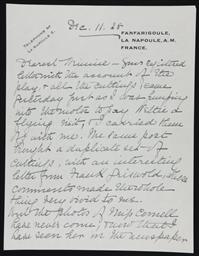 TÉLÉPHONE 
LA NAPOULE
Dec. 11. 28
FANFARIGOULE,
LA NAPOULE, A.M.
FRANCE.
Dearest Minnie – Your registered
letter with the account of the
play & all the cuttings, came
yesterday just as I was jumping
into the motor to pay a
flying visit, & I carried them
off with me. The same post
brought a duplicate set of
cuttings, with an interesting
letter from Frank
comments made the whole
thing very vivid to me.
Now the photos of Miss Cornell
have never come; & now that I
have seen her in the newspaper